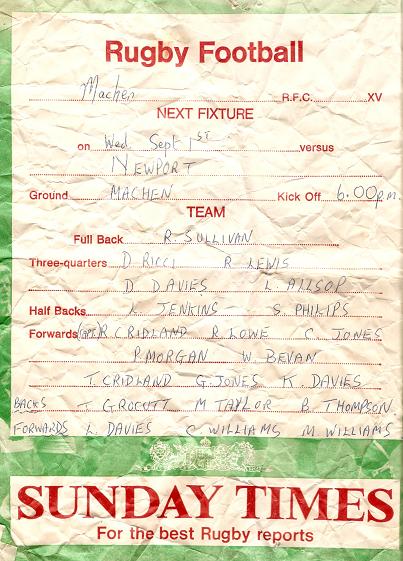 Rugby Football
Machen R.F.C. XV
NEXT FIXTURE
on Wed. Sept 1ST versus
NEWPORT
Ground MACHEN Kick Off 6.00p.m.
TEAM
Full Back R. SULLIVAN
Three-quarters D RICCI R LEWIS
D DAVIES L ALLSOP
Half Backs L. JENKINS S. PHILIPS
Forwards (CAPT) R CRIDLAND R. LOWE C. JONES
P. MORGAN W. BEVAN
T. CRIDLAND G. JONES K. DAVIES
BACKS G. ROCUTT M TAYLOR B. THOMPSON
FORWARDS L. DAVIES C WILLIAMS M. WILLIAMS
SUNDAY TIMES
For the best Rugby reports